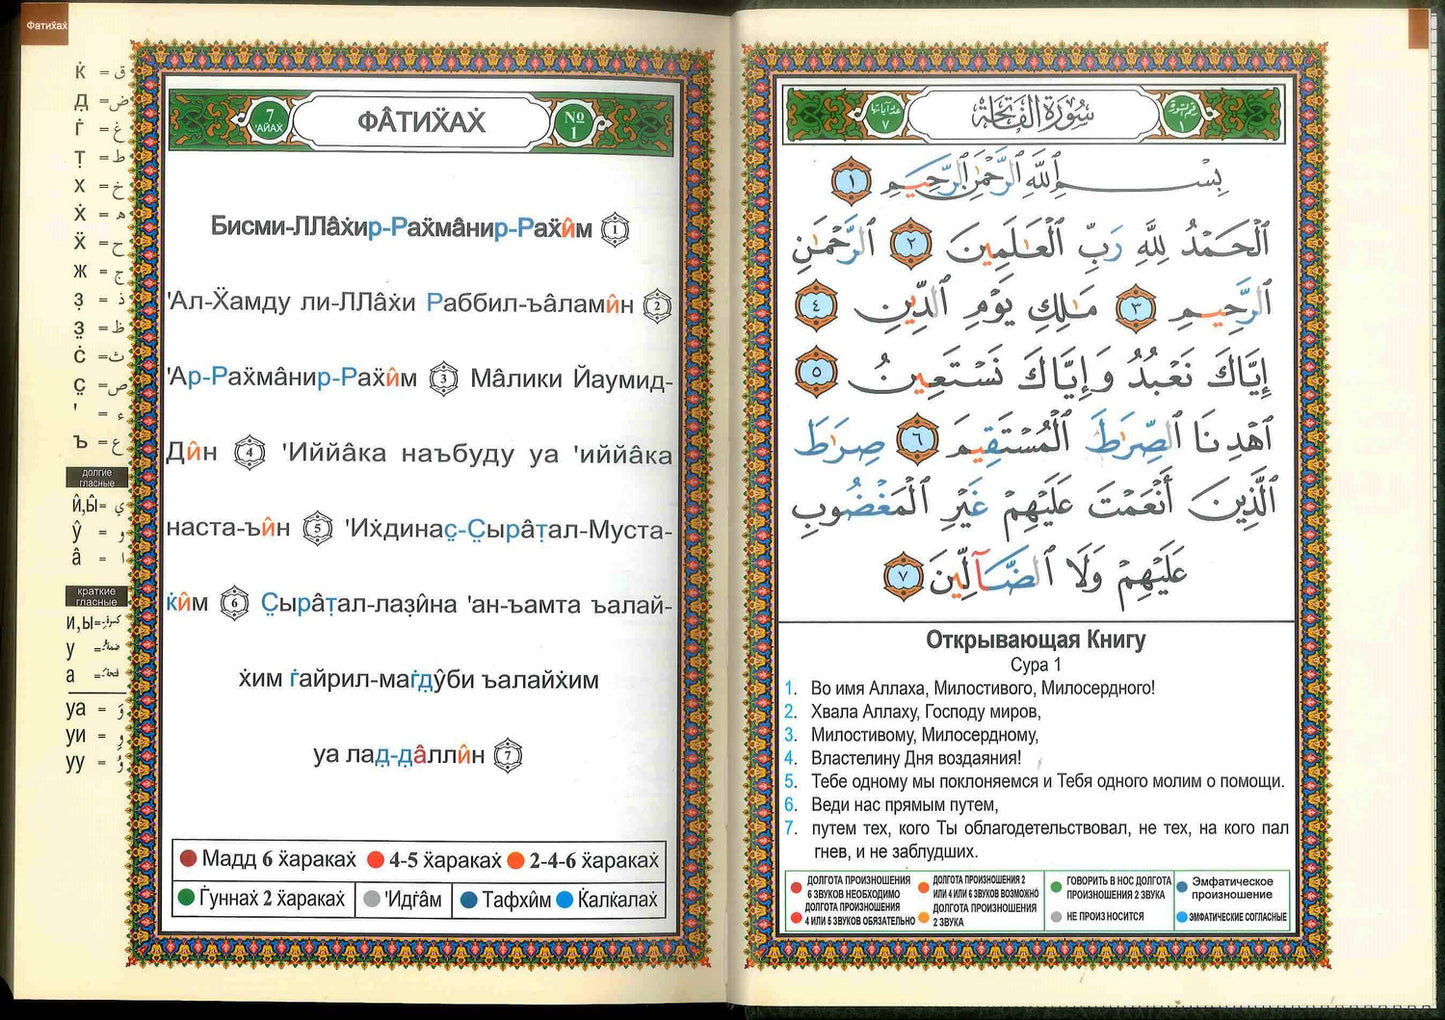 Фатиẍаẋ
к̇ = ق
д̣ = ض
г̇ = غ
т̣ = ط
х = خ
ẋ = ه
ẍ = ح
ж = ج
з̣ = ذ
з̤ = ظ
с̇ = ث
с̤ = ص
' = ء
ъ = ع
долгие
гласные
и̂,ы̂ = ي
у̂ = و
а̂ = ا
краткие
гласные
и,ы=
у =
а =
уа = وَ
уи = وِ
уу = وُ
7
'АЙАẊ
ФА̂ТИẌАẊ
№
1
Бисми-ЛЛа̂ẋир-Раẍма̂нир-Раẍи̂м 1
'Ал-Ẍамду ли-ЛЛа̂ẋи Раббил-ъа̂лами̂н 2
'Ар-Раẍма̂нир-Раẍи̂м 3 Ма̂лики Йаумид-
Ди̂н 4 'Иййа̂ка наъбуду уа 'иййа̂ка
наста-ъи̂н 5 'Иẋдинас̤-С̤ыра̂т̣ал-Муста-
к̇и̂м 6 С̤ыра̂т̣ал-лаз̣и̂на 'ан-ъамта ъалай-
ẋим г̇айрил-маг̇д̣у̂би ъалайẋим
уа лад̣-д̣а̂лли̂н 7
Мадд 6 ẍаракаẋ 4-5 ẍаракаẋ 2-4-6 ẍаракаẋ
Г̇уннаẋ 2 ẍаракаẋ 'Идг̇а̂м Тафхи̂м К̇алк̇алаẋ
عدد آياتها
٧
سُورَةُ الفَاتِحَة
رقم السورة
١
بِسْمِ ٱللَّهِ ٱلرَّحْمَٰنِ ٱلرَّحِيمِ ١
ٱلْحَمْدُ لِلَّهِ رَبِّ ٱلْعَٰلَمِينَ ٢ ٱلرَّحْمَٰنِ
ٱلرَّحِيمِ ٣ مَٰلِكِ يَوْمِ ٱلدِّينِ ٤
إِيَّاكَ نَعْبُدُ وَإِيَّاكَ نَسْتَعِينُ ٥
ٱهْدِنَا ٱلصِّرَٰطَ ٱلْمُسْتَقِيمَ ٦ صِرَٰطَ
ٱلَّذِينَ أَنْعَمْتَ عَلَيْهِمْ غَيْرِ ٱلْمَغْضُوبِ
عَلَيْهِمْ وَلَا ٱلضَّآلِّينَ ٧
Открывающая Книгу
Сура 1
1. Во имя Аллаха, Милостивого, Милосердного!
2. Хвала Аллаху, Господу миров,
3. Милостивому, Милосердному,
4. Властелину Дня воздаяния!
5. Тебе одному мы поклоняемся и Тебя одного молим о помощи.
6. Веди нас прямым путем,
7. путем тех, кого Ты облагодетельствовал, не тех, на кого пал
гнев, и не заблудших.
ДОЛГОТА ПРОИЗНОШЕНИЯ
6 ЗВУКОВ НЕОБХОДИМО
ДОЛГОТА ПРОИЗНОШЕНИЯ
4 ИЛИ 5 ЗВУКОВ ОБЯЗАТЕЛЬНО
ДОЛГОТА ПРОИЗНОШЕНИЯ 2
ИЛИ 4 ИЛИ 6 ЗВУКОВ ВОЗМОЖНО
ДОЛГОТА ПРОИЗНОШЕНИЯ
2 ЗВУКА
ГОВОРИТЬ В НОС ДОЛГОТА
ПРОИЗНОШЕНИЯ 2 ЗВУКА
НЕ ПРОИЗНОСИТСЯ
Эмфатическое
произношение
ЭМФАТИЧЕСКИЕ СОГЛАСНЫЕ